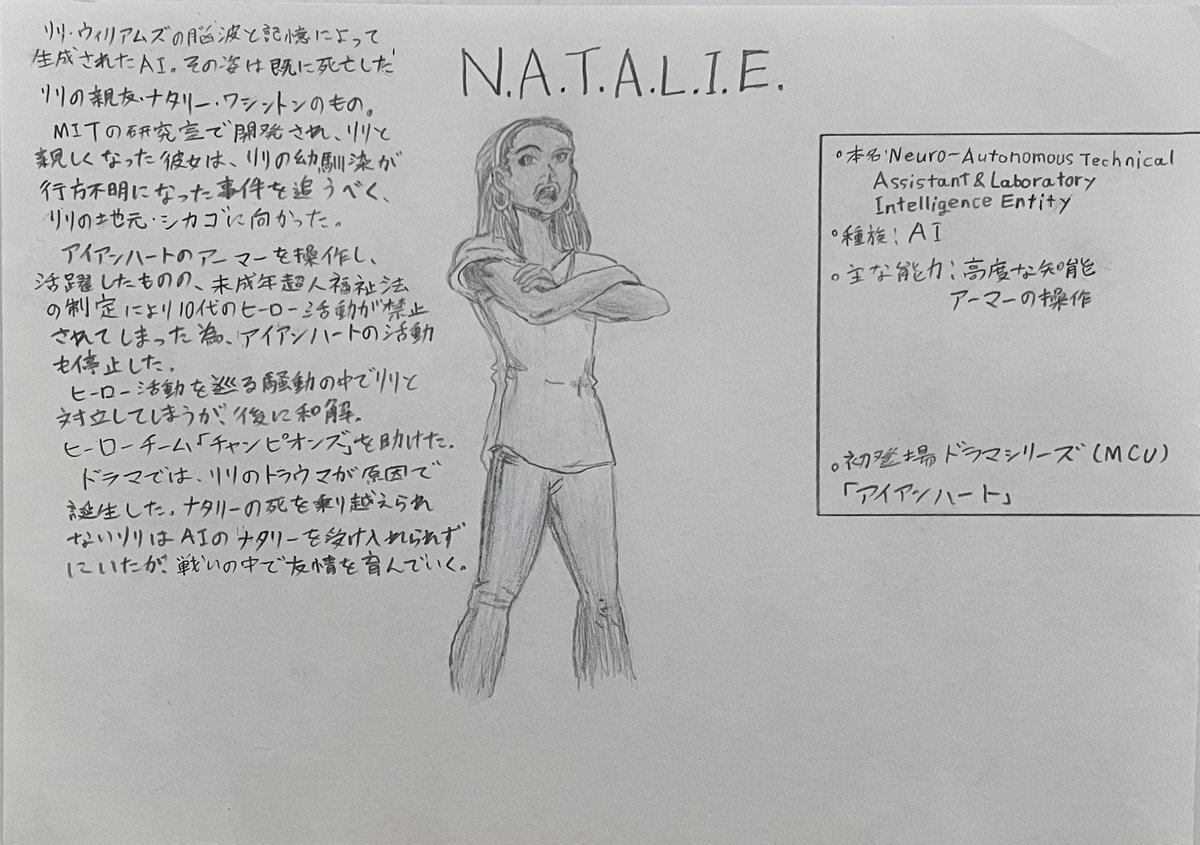 N.A.T.A.L.I.E.
リリ・ウィリアムズの脳波と記憶によって
生成されたAI。その姿は既に死亡した
リリの親友・ナタリー・ワシントンのもの。
MITの研究室で開発され、リリと
親しくなった彼女は、リリの幼馴染が
行方不明になった事件を追うべく、
リリの地元・シカゴに向かった。
アイアンハートのアーマーを操作し、
活躍したものの、未成年超人福祉法
の制定により10代のヒーロー活動が禁止
されてしまった為、アイアンハートの活動
も停止した。
ヒーロー活動を巡る騒動の中でリリと
対立してしまうが、後に和解。
ヒーローチーム「チャンピオンズ」を助けた。
ドラマでは、リリのトラウマが原因で
誕生した。ナタリーの死を乗り越えられ
ないリリはAIのナタリーを受け入れられず
にいたが、戦いの中で友情を育んでいく。
°本名:Neuro-Autonomous Technical
Assistant & Laboratory
Intelligence Entity
°種族:AI
°主な能力:高度な知能
アーマーの操作
°初登場 ドラマシリーズ(MCU)
「アイアンハート」